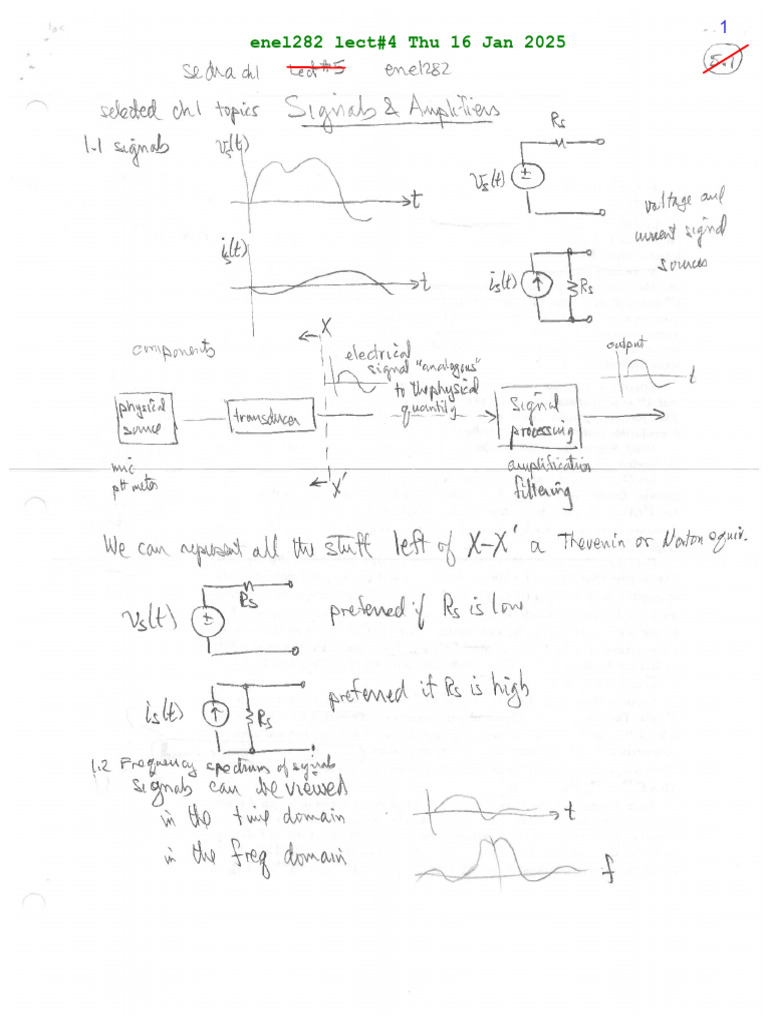 1
enel282 lect#4 Thu 16 Jan 2025
5.1
sedra ch1 Lect#5 enel282
selected ch1 topics Signals & Amplifiers
1.1 signals
vs(t)
t
is(t)
t
Rs
vs(t)
is(t)
Rs
voltage and
current signal
sources
components
X
electrical
signal "analogous"
to the physical
quantity
output
t
physical
source
transducer
signal
processing
mic
pH meter
X'
amplification
filtering
We can represent all the stuff left of X-X' a Thevenin or Norton equiv.
vs(t)
Rs
preferred if Rs is low
is(t)
Rs
preferred if Rs is high
1.2 Frequency spectrum of signals
signals can be viewed
in the time domain
t
in the freq domain
f